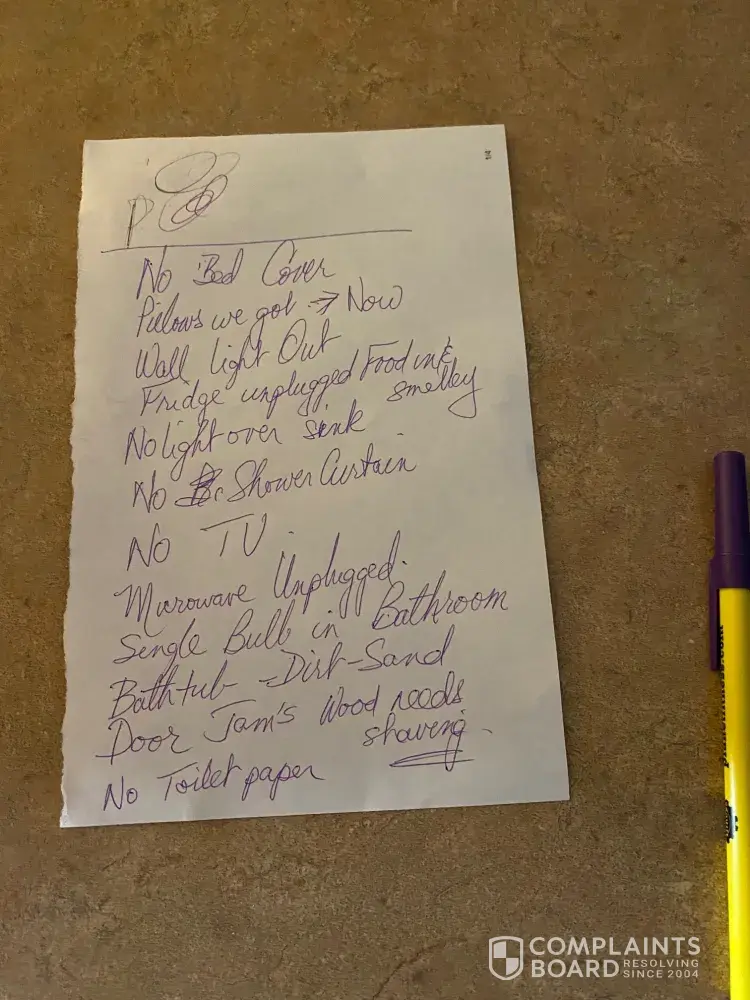 P
No Bed Cover
Pillows we got → Now
Wall Light Out
Fridge unplugged Food in it
smelley
No light over sink
No Shower Curtain
No TV.
Microwave Unplugged.
Single Bulb in Bathroom
Bathtub - Dirt-Sand
Door Jam's Wood needs
shaving.
No Toilet paper
COMPLAINTS
BOARD RESOLVING
SINCE 2004